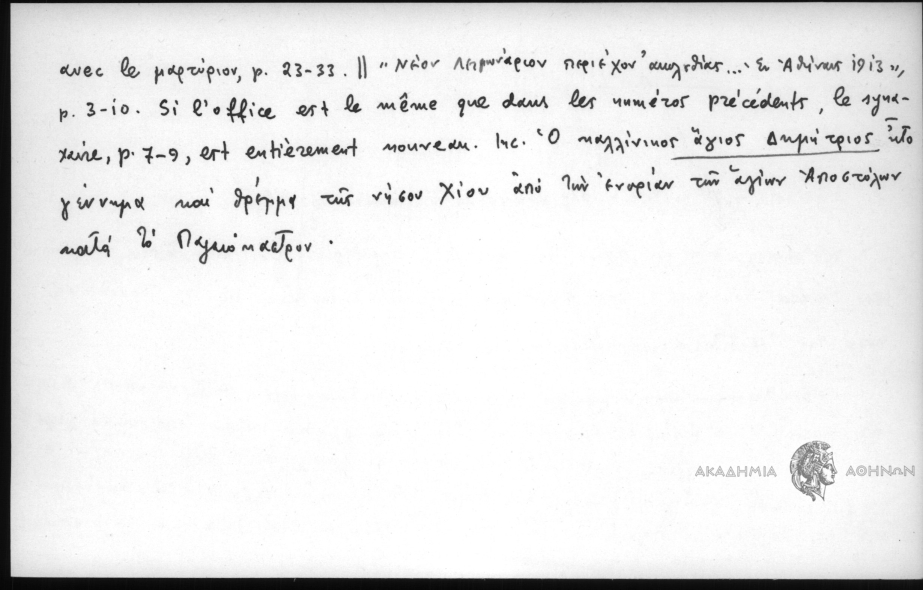 avec le μαρτύριον, p. 23-33. || "Νέον Λειμωνάριον περιέχον ἀκολουθίας... Ἐν Ἀθήναις 1913",
p. 3-10. Si l'office est le même que dans les numéros précédents, le syna-
xaire, p. 7-9, est entièrement nouveau. Inc. Ὁ καλλίνικος ἅγιος Δημήτριος ἦτο
γέννημα καὶ θρέμμα τῆς νήσου Χίου ἀπὸ τὴν ἐνορίαν τῶν ἁγίων Ἀποστόλων
κατὰ τὸ Παλαιόκαστρον.
ΑΚΑΔΗΜΙΑ ΑΘΗΝΩΝ